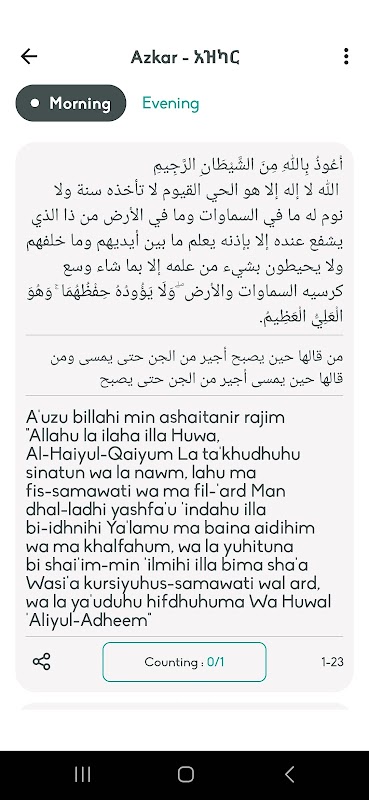 Azkar - አዝካር
Morning
Evening
أعُوذُ بِاللَّهِ مِنَ الشَّيْطَانِ الرَّجِيمِ
اللّه لا إله إلا هو الحي القيوم لا تأخذه سنة ولا
نوم له ما في السماوات وما في الأرض من ذا الذي
يشفع عنده إلا بإذنه يعلم ما بين أيديهم وما خلفهم
ولا يحيطون بشيء من علمه إلا بما شاء وسع
كرسيه السماوات والأرض ۖ وَلَا يَؤُودُهُ حِفْظُهُمَا ۚ وَهُوَ
الْعَلِيُّ الْعَظِيمُ.
من قالها حين يصبح أجير من الجن حتى يمسى ومن
قالها حين يمسى أجير من الجن حتى يصبح
A'uzu billahi min ashaitanir rajim
"Allahu la ilaha illa Huwa,
Al-Haiyul-Qaiyum La ta'khudhuhu
sinatun wa la nawm, lahu ma
fis-samawati wa ma fil-'ard Man
dhal-ladhi yashfa'u 'indahu illa
bi-idhnihi Ya'lamu ma baina aidihim
wa ma khalfahum, wa la yuhituna
bi shai'im-min 'ilmihi illa bima sha'a
Wasi'a kursiyuhus-samawati wal ard,
wa la ya'uduhu hifdhuhuma Wa Huwal
'Aliyul-Adheem"
Counting : 0/1
1-23